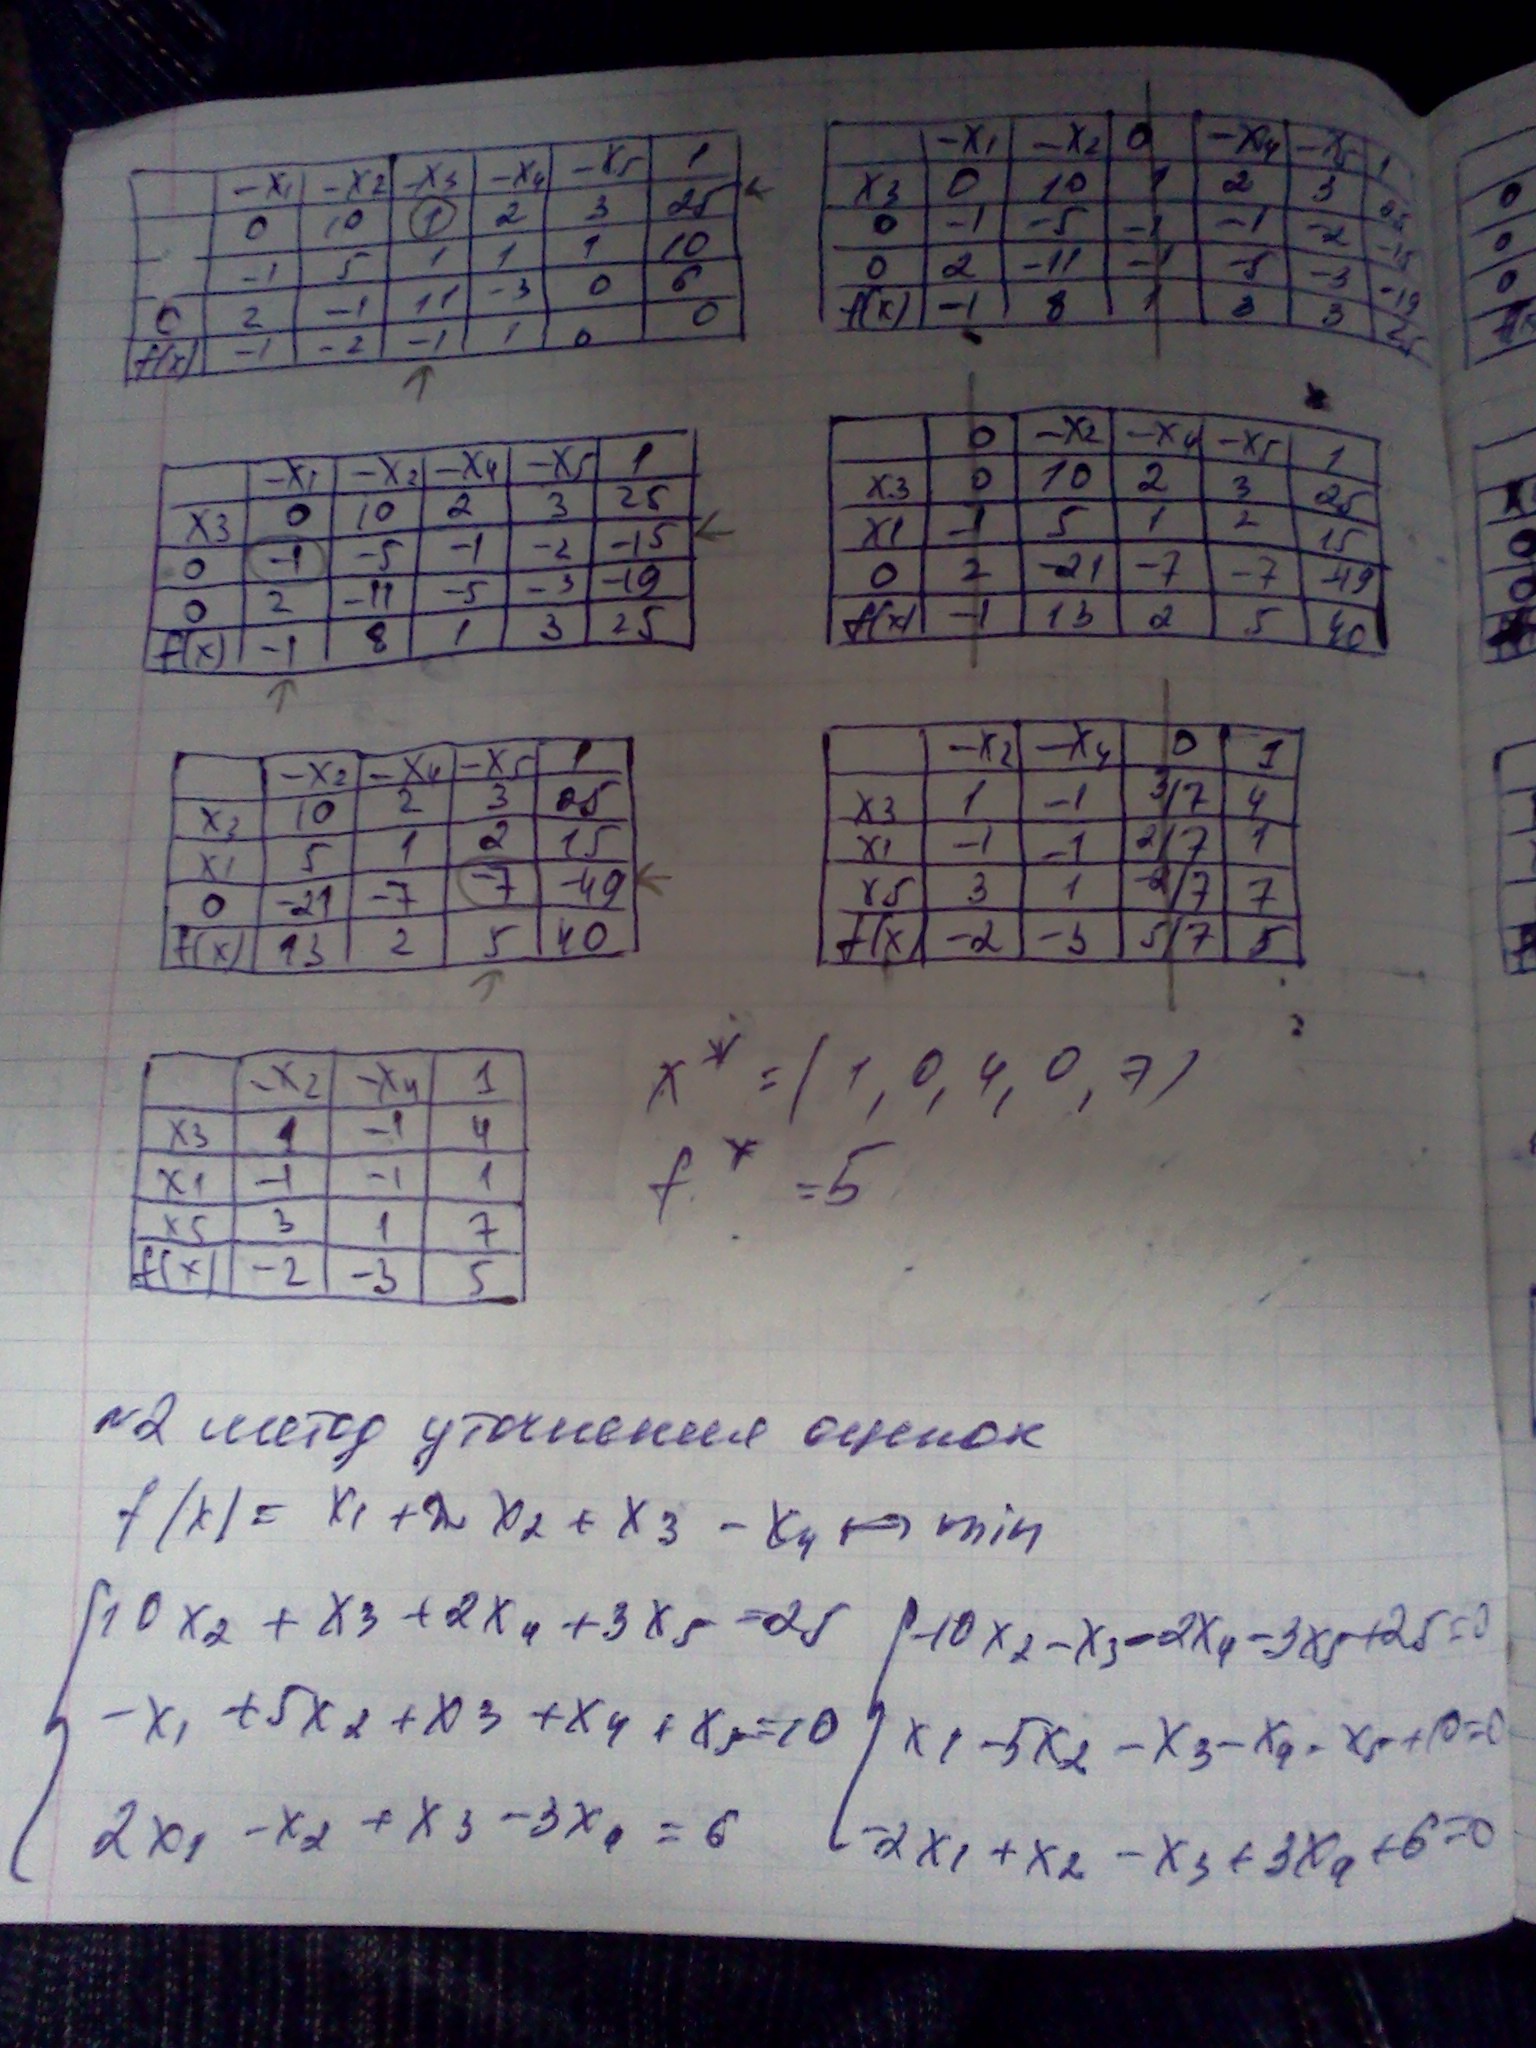 -x1 -x2 -x3 -x4 -x5 1
0 10 1 2 3 25
-1 5 1 1 1 10
0 2 -1 11 -3 0 6
f(x) -1 -2 -1 1 0 0
-x1 -x2 0 -x4 -x5 1
x3 0 10 1 2 3
0 -1 -5 -1 -1 -2 -15
0 2 -11 -1 -5 -3 -19
f(x) -1 8 1 3 3 25
-x1 -x2 -x4 -x5 1
x3 0 10 2 3 25
0 -1 -5 -1 -2 -15
0 2 -11 -5 -3 -19
f(x) -1 8 1 3 25
0 -x2 -x4 -x5 1
x3 0 10 2 3 25
x1 -1 5 1 2 15
0 2 -21 -7 -7 -49
f(x) -1 13 2 5 40
-x2 -x4 -x5 1
x3 10 2 3 25
x1 5 1 2 15
0 -21 -7 -7 -49
f(x) 13 2 5 40
-x2 -x4 0 1
x3 1 -1 3/7 4
x1 -1 -1 2/7 1
x5 3 1 -2/7 7
f(x) -2 -3 5/7 5
-x2 -x4 1
x3 1 -1 4
x1 -1 -1 1
x5 3 1 7
f(x) -2 -3 5
x* = (1, 0, 4, 0, 7)
f* = 5
№2 метод уточнения оценок
f(x) = x1 + 2x2 + x3 - x4 → min
10x2 + x3 + 2x4 + 3x5 = 25
-x1 + 5x2 + x3 + x4 + x5 = 10
2x1 - x2 + x3 - 3x4 = 6
-10x2 - x3 - 2x4 - 3x5 + 25 = 0
x1 - 5x2 - x3 - x4 - x5 + 10 = 0
-2x1 + x2 - x3 + 3x4 + 6 = 0